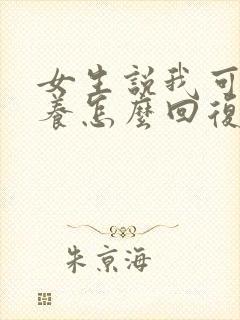 女生說我可
養怎麼回復
朱京海